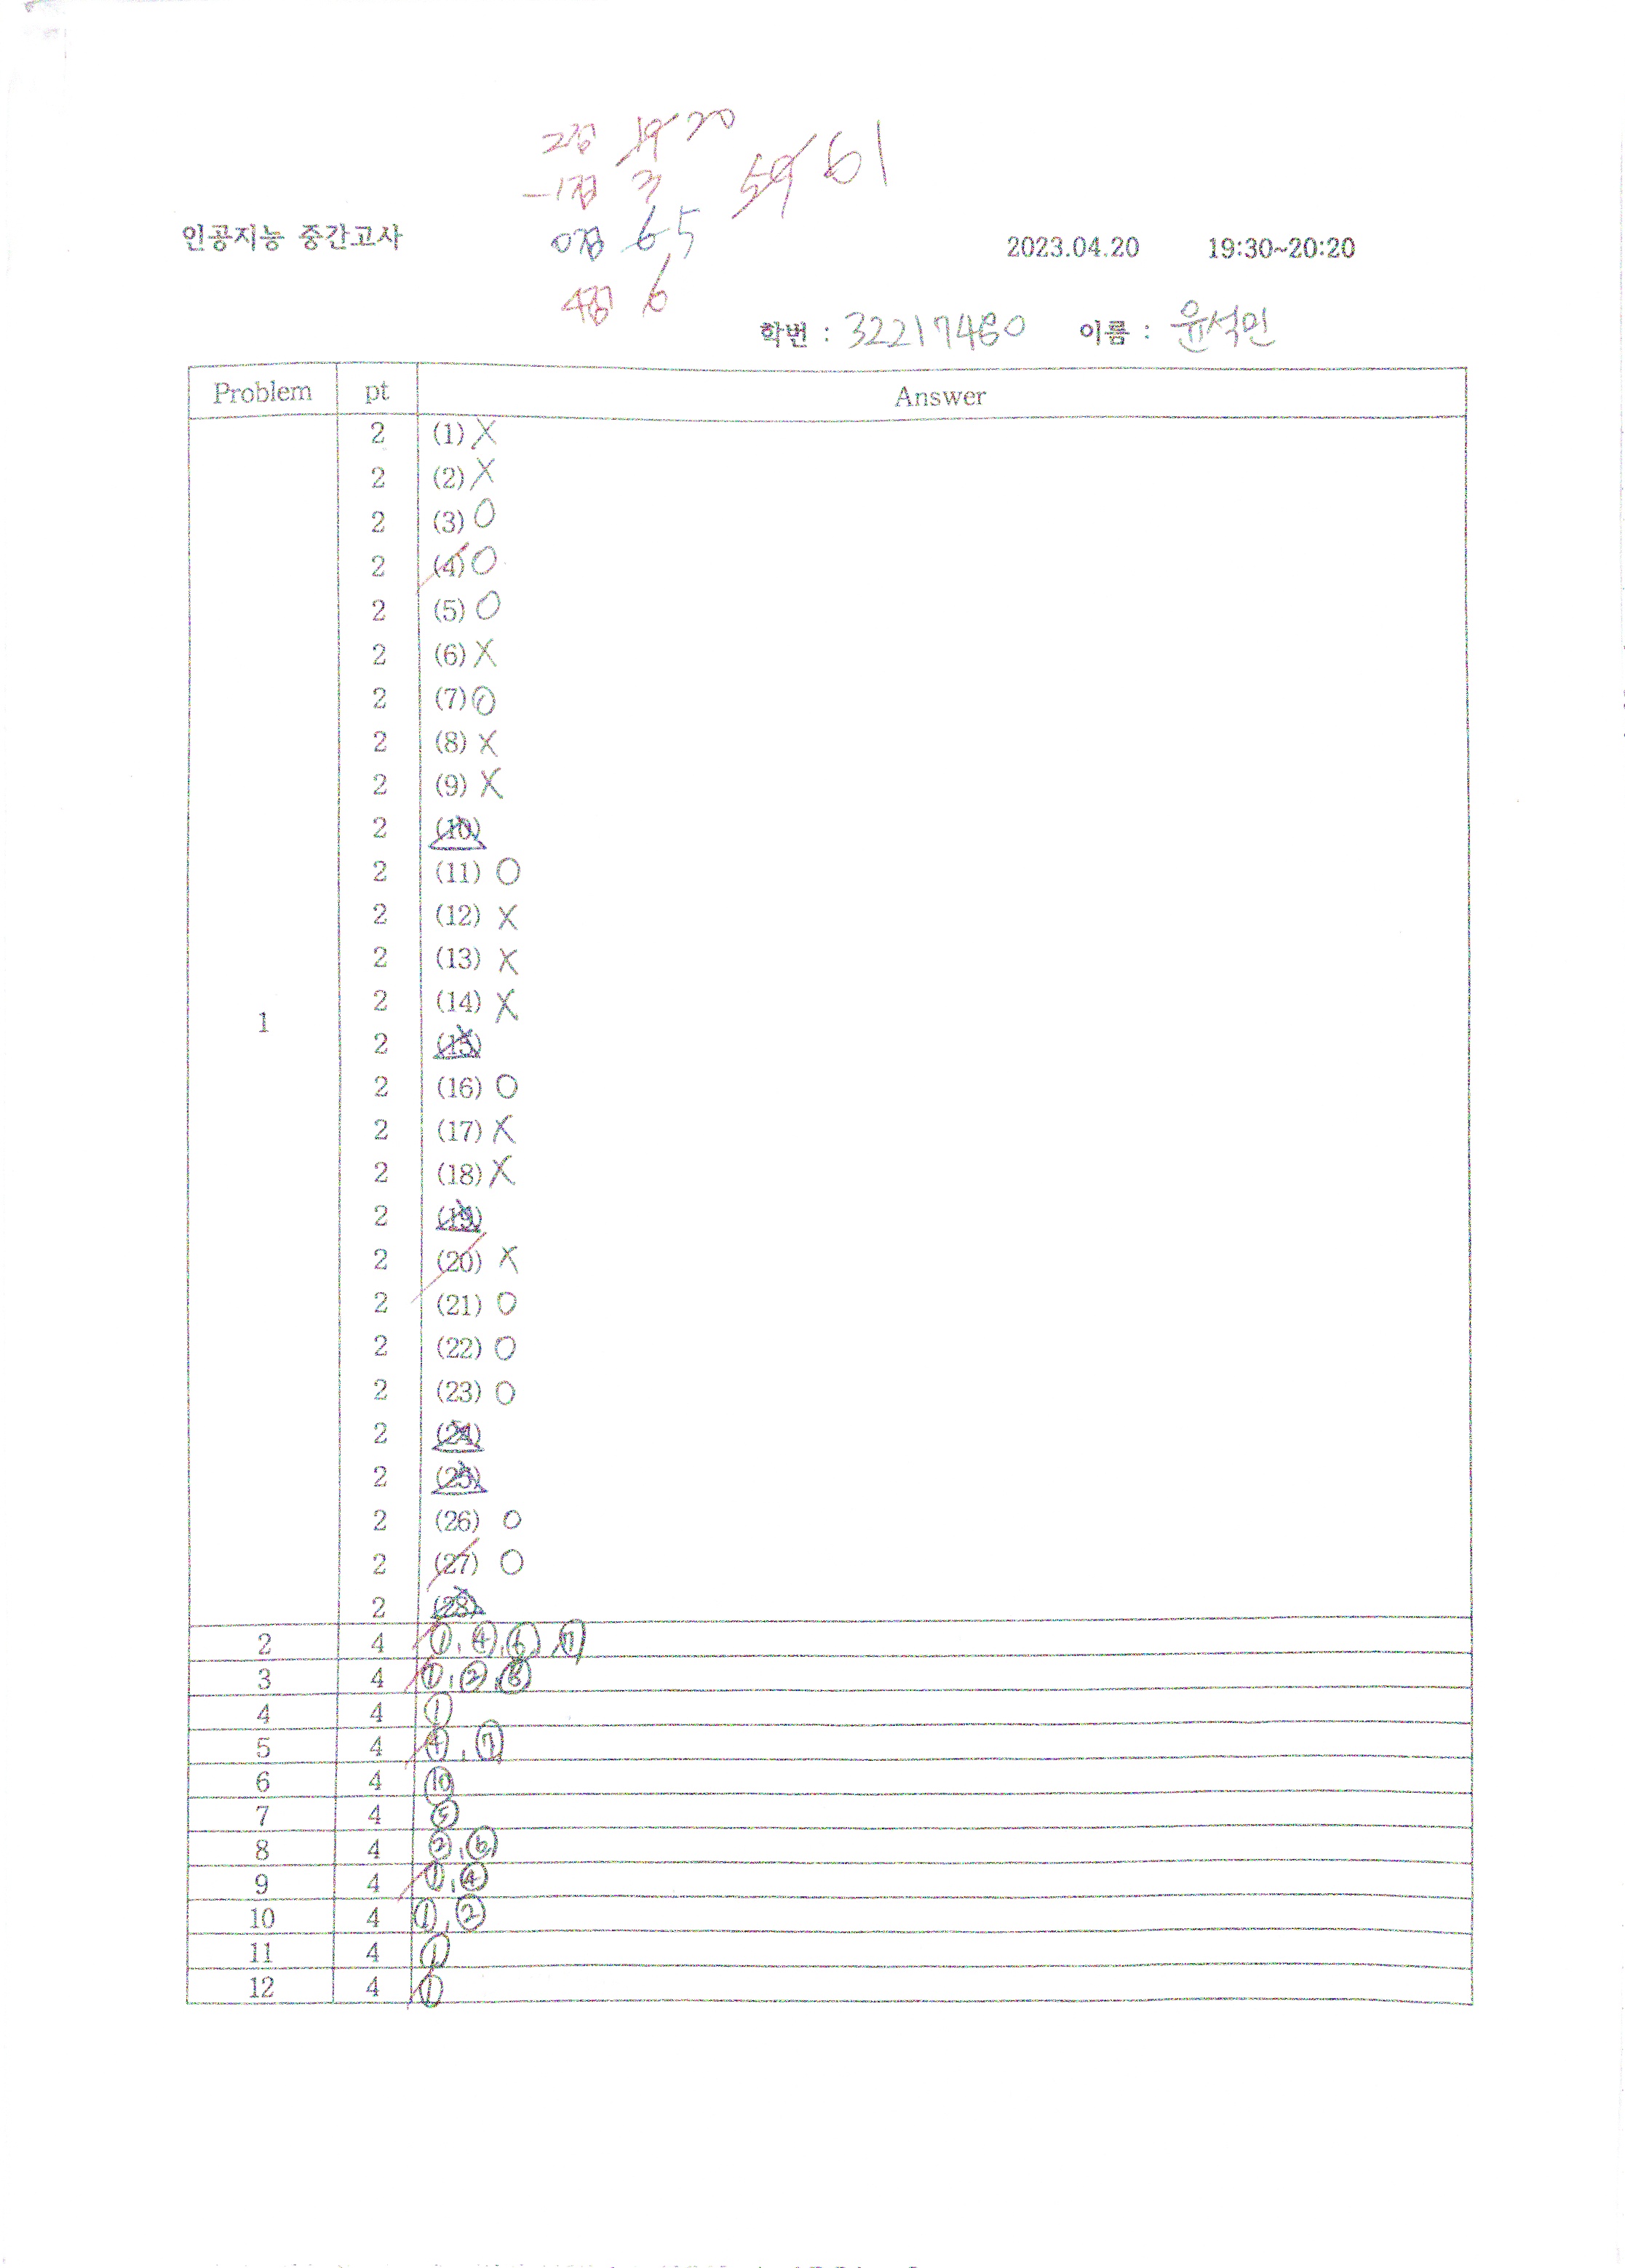 2점 19 20
-1점 3 59 61
인공지능 중간고사 0점 6 5 2023.04.20 19:30~20:20
4점 6
학번 : 32217480 이름 : 윤석민
Problem pt Answer
2 (1) X
2 (2) X
2 (3) O
2 (4) O
2 (5) O
2 (6) X
2 (7) O
2 (8) X
2 (9) X
2 (10)
2 (11) O
2 (12) X
2 (13) X
2 (14) X
1
2 (15)
2 (16) O
2 (17) X
2 (18) X
2 (19)
2 (20) X
2 (21) O
2 (22) O
2 (23) O
2 (24)
2 (25)
2 (26) O
2 (27) O
2 (28)
2 4 ①, ④, ⑥, ⑦
3 4 ①, ②, ⑧
4 4 ①
5 4 ④, ⑦
6 4 ⑩
7 4 ⑤
8 4 ②, ⑥
9 4 ①, ④
10 4 ①, ②
11 4 ①
12 4 ①